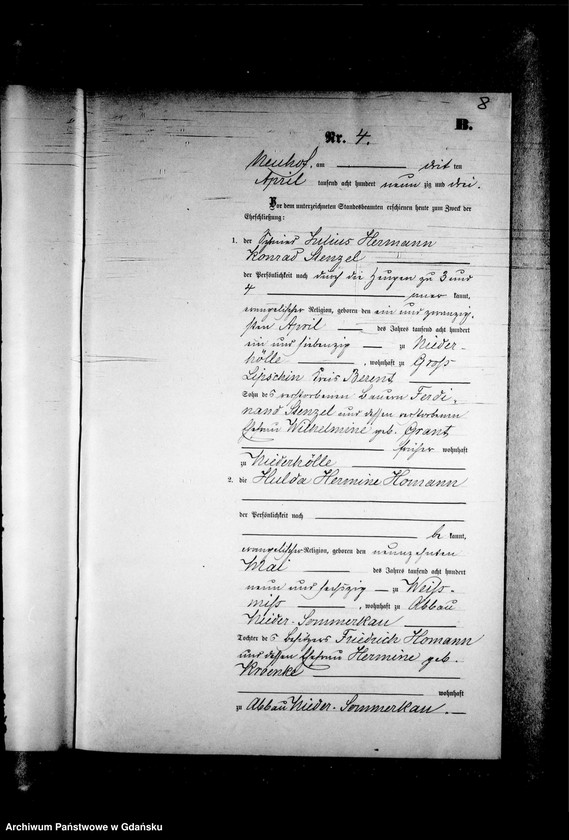 8
B.
Nr. 4.
Neuhof, am dritten
April tausend acht hundert neunzig und drei.
Vor dem unterzeichneten Standesbeamten erschienen heute zum Zweck der
Eheschließung:
1. der Julius Hermann
Konrad Stenzel
der Persönlichkeit nach durch die Zeugen zu 3 und
4 aner kannt,
evangelischer Religion, geboren den ein und zwanzig-
sten April des Jahres tausend acht hundert
ein und siebenzig zu Nieder-
hölle, wohnhaft zu Groß
Lipschin Kreis Berent
Sohn des verstorbenen Bauern Ferdi-
nand Stenzel und dessen verstorbenen
Ehefrau Wilhelmine geb. Grant
früher wohnhaft
zu Niederhölle
2. die Hulda Hermine Homann
der Persönlichkeit nach
be kannt,
evangelischer Religion, geboren den neunzehnten
Mai des Jahres tausend acht hundert
neun und sechszig zu
, wohnhaft zu Abbau
Nieder-Sommerkau
Tochter des Besitzers Friedrich Homann
und dessen Ehefrau Hermine geb.
wohnhaft
zu Abbau Nieder-Sommerkau.
Archiwum Państwowe w Gdańsku